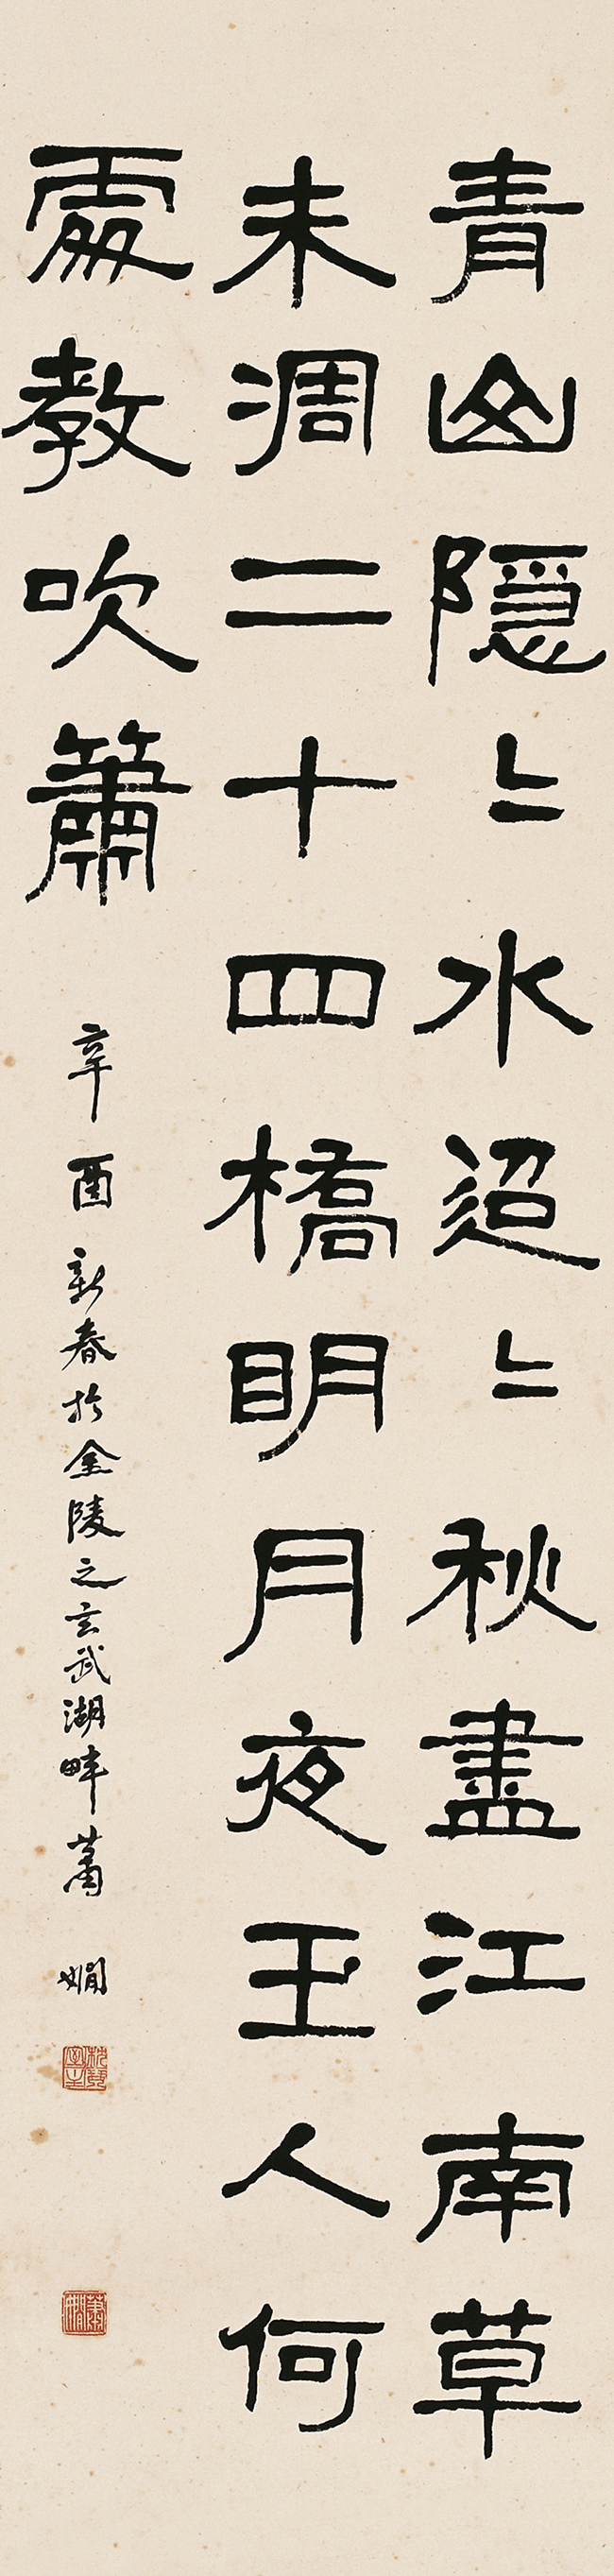 青山隱〻水迢〻秋盡江南草
未凋二十四橋明月夜玉人何
處教吹簫
辛酉新春於金陵之玄武湖畔蕭嫻
蕭嫻